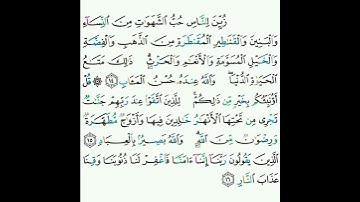 زُيِّنَ لِلنَّاسِ حُبُّ ٱلشَّهَوَٰتِ مِنَ ٱلنِّسَآءِ
وَٱلۡبَنِينَ وَٱلۡقَنَٰطِيرِ ٱلۡمُقَنطَرَةِ مِنَ ٱلذَّهَبِ وَٱلۡفِضَّةِ
وَٱلۡخَيۡلِ ٱلۡمُسَوَّمَةِ وَٱلۡأَنۡعَٰمِ وَٱلۡحَرۡثِۗ ذَٰلِكَ مَتَٰعُ
ٱلۡحَيَوٰةِ ٱلدُّنۡيَاۖ وَٱللَّهُ عِندَهُۥ حُسۡنُ ٱلۡمَـَٔابِ ١٤ ۞ قُلۡ
أَؤُنَبِّئُكُم بِخَيۡرٖ مِّن ذَٰلِكُمۡۖ لِلَّذِينَ ٱتَّقَوۡاْ عِندَ رَبِّهِمۡ جَنَّٰتٞ
تَجۡرِي مِن تَحۡتِهَا ٱلۡأَنۡهَٰرُ خَٰلِدِينَ فِيهَا وَأَزۡوَٰجٞ مُّطَهَّرَةٞ
وَرِضۡوَٰنٞ مِّنَ ٱللَّهِۗ وَٱللَّهُ بَصِيرُۢ بِٱلۡعِبَادِ ١٥
ٱلَّذِينَ يَقُولُونَ رَبَّنَآ إِنَّنَآ ءَامَنَّا فَٱغۡفِرۡ لَنَا ذُنُوبَنَا وَقِنَا
عَذَابَ ٱلنَّارِ ١٦